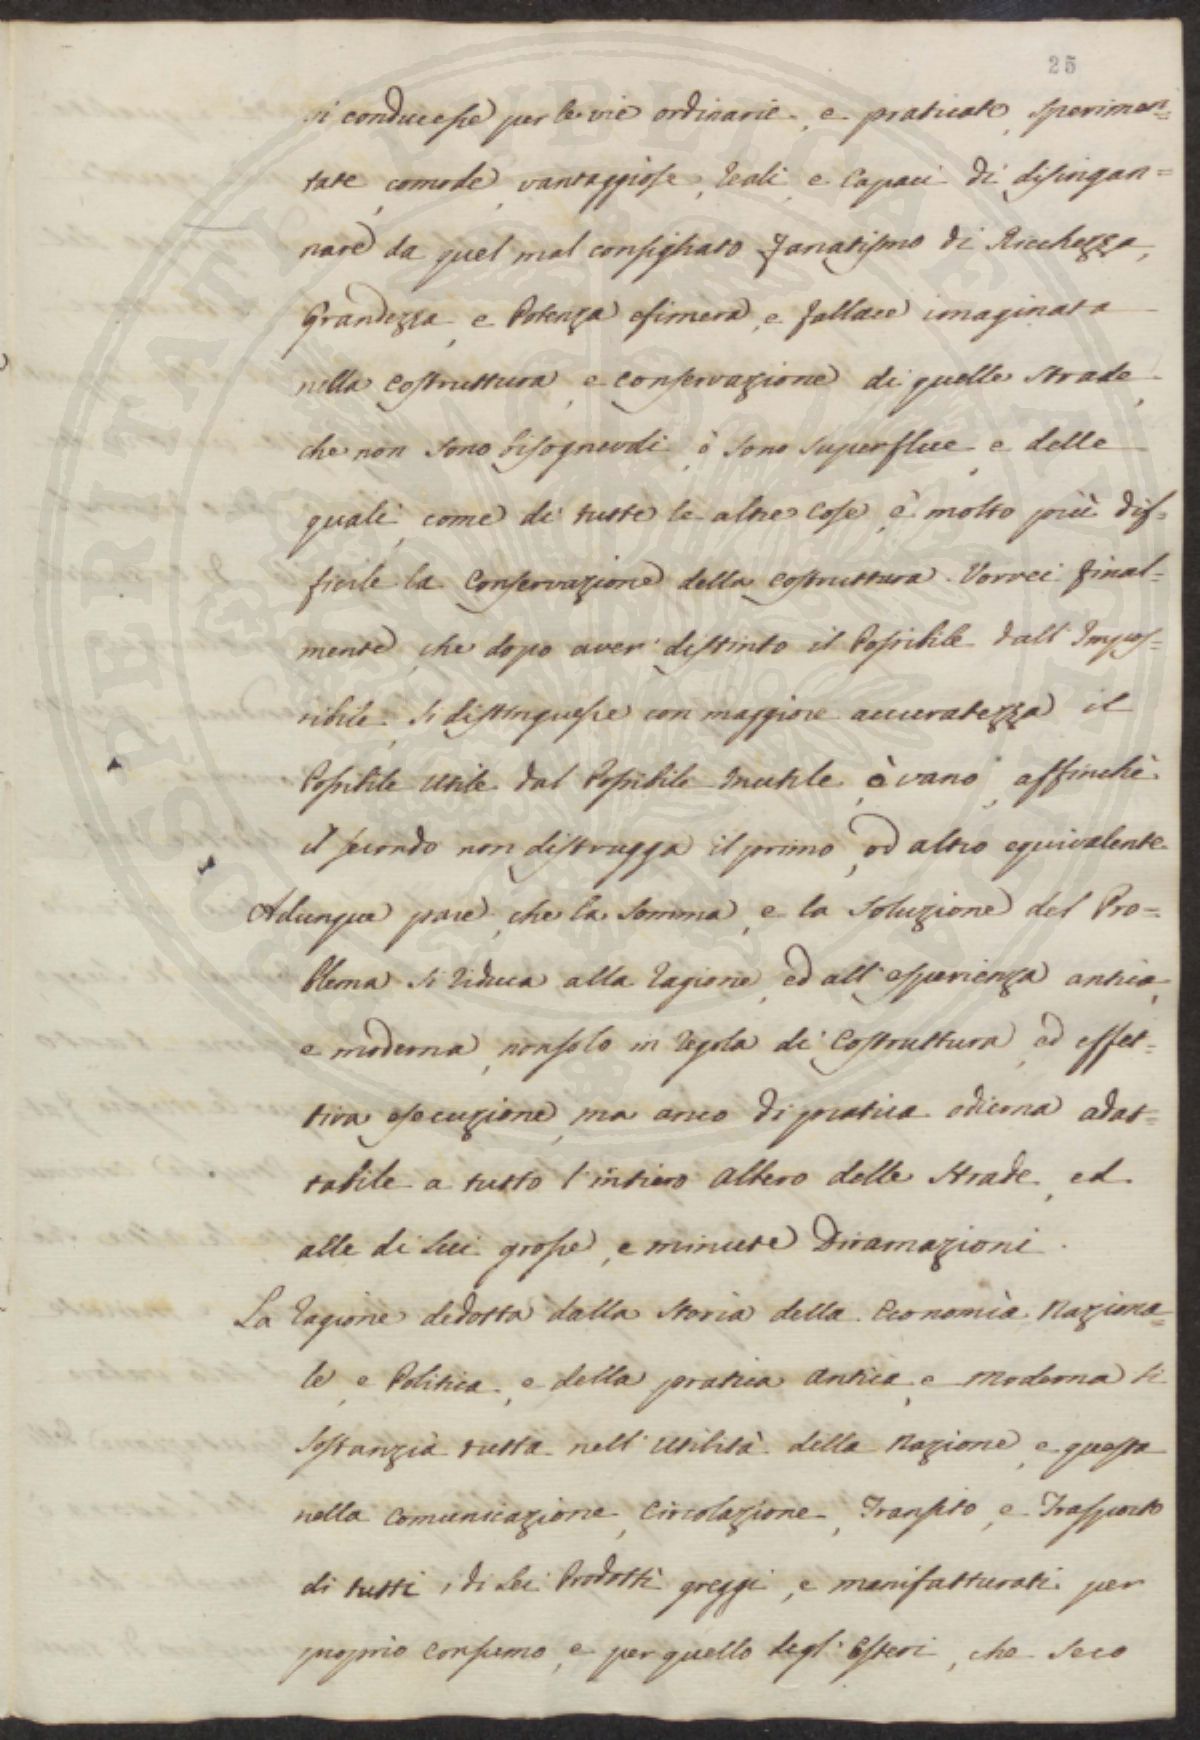 25
si conducesse per le vie ordinarie, e praticate, sperimen=
tate, comode, vantaggiose, reali, e capaci di disingan=
nare da quel mal consigliato Fanatismo di Ricchezza,
Grandezza, e Potenza efimera, e fallace imaginata
nella costruttura, e conservazione di quelle Strade,
che non sono bisognevoli, ò sono superflue, e delle
quali, come di tutte le altre cose, è molto più dif=
ficile la Conservazione della costruttura. Vorrei final=
mente, che dopo aver distinto il Possibile dall'Impos=
sibile, si distinguesse con maggiore accuratezza il
Possibile utile dal Possibile inutile, ò vano, affinchè
il secondo non distrugga il primo, od altro equivalente.
Adunque pare, che la somma, e la soluzione del Pro=
blema si riduca alla ragione, ed all'esperienza antica,
e moderna, nonsolo in regola di Costruttura, ed effet=
tiva esecuzione, ma anco di pratica odierna adat=
tabile a tutto l'intiero Albero delle Strade, ed
alle di lui grosse, e minute Diramazioni.
La ragione dedotta dalla Storia della Economia Naziona=
le, e Politica, e della pratica antica, e moderna si
sostanzia tutta nell'utilità della Nazione, e questa
nella comunicazione, Circolazione, Transito, e Trasporto
di tutti i di Lei Prodotti greggi, e manifatturati per
proprio consumo, e per quello degl'Esteri, che seco
SOSPERITATI PUBLICAE AUGENDAE